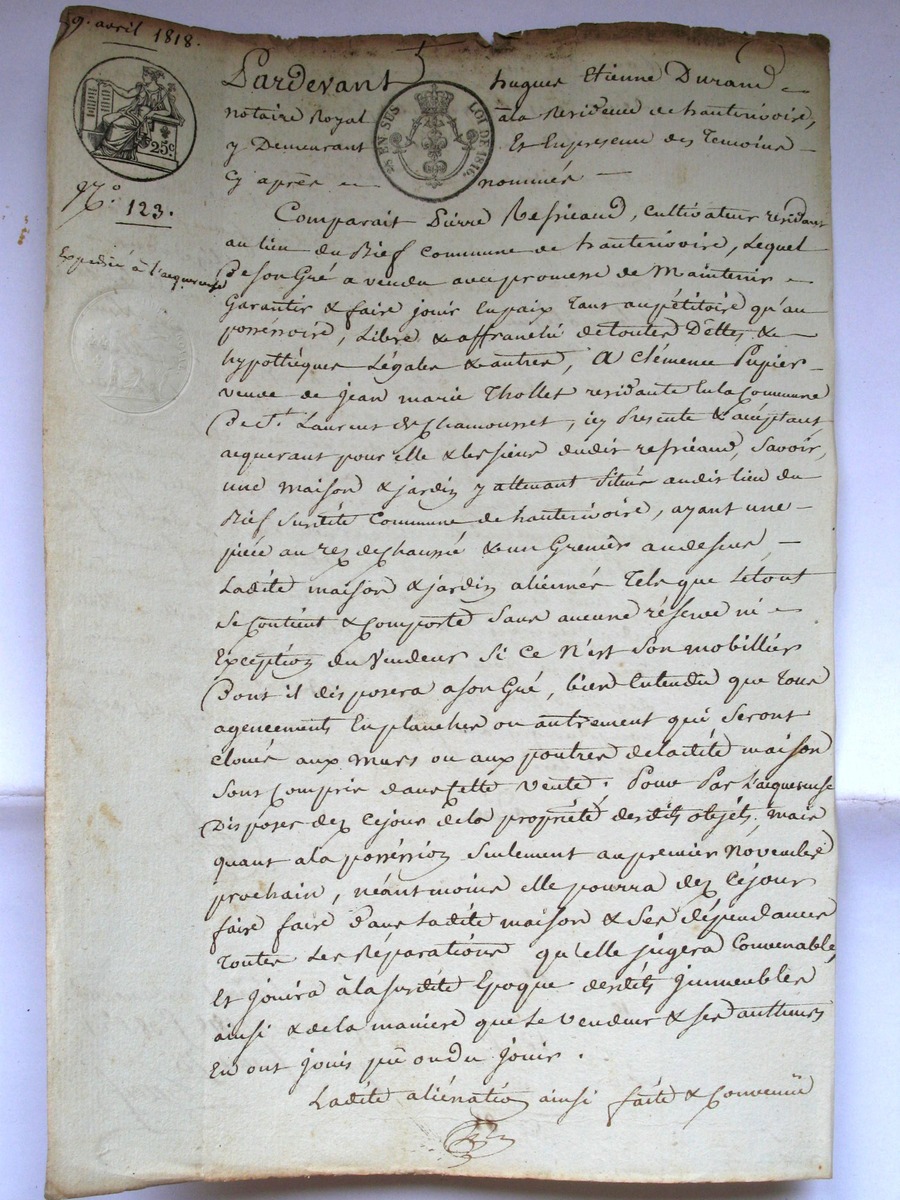 9. avril 1818.
25c.
EN SUS LOI DE 1816.
N.° 123.
Expédié à l'acquereuse
Pardevant hugues Etienne Durand
notaire Royal à la Residence de hauterivoire,
y Demeurant Et En presence des Temoins
Cy après nommés
Comparait Pierre Refrieaud, cultivateur residant
au lieu du Rief commune de hauterivoire, Lequel
De son Gré a vendu avec promesse de Maintenir
Garantir & faire jouir En paix tant au pétitoire qu'au
possessoire, Libre & affranchi de toutes Dettes &
hypothèques Légales & autres, A Clémence Pupier
veuve de jean marie Thollet residante En la Commune
De St. Laurent de Chamousset, icy Presente & acceptant
acquerant pour elle & les siens dudit refrieaud, Savoir,
une maison & jardin y attenant Situés audit lieu du
Rief Susdite Commune de hauterivoire, ayant une
pièce au rez de Chaussé & un Grenier au dessus
Ladite maison & jardin aliennés Tels que Le tout
Se Contient & Comporte Sans aucune réserve ni
Exception du Vendeur Si Ce N'est Son mobillier
Dont il disposera a son Gré, bien Entendu que Tous
agencements En plancher ou autrement qui Seront
cloués aux murs ou aux poutres de ladite maison
Sont Compris dans Cette Vente. Pour Par L'acquereuse
Disposer dez Ce jour de la propriété desdits objets, mais
quant a la possession Seulement au premier Novembre
prochain, néantmoins elle pourra dez Ce jour
faire faire dans Ladite maison & Ses dépendances
Toutes Les Réparations qu'elle jugera Convenable,
Et jouira à la susdite Epoque desdits jmmeubles
ainsi & de la maniere que Le vendeur & Ses autheurs
En ont joui pû ou du jouir.
Ladite aliénation ainsi faite & Convenuë